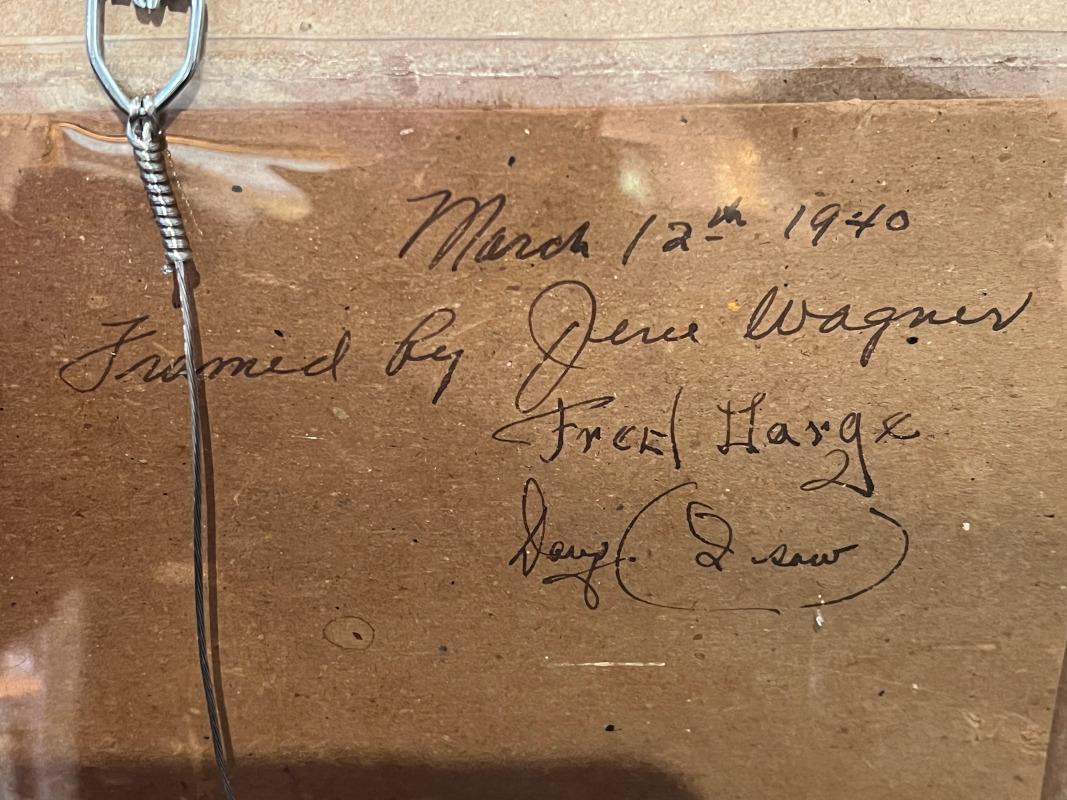 March 12th 1940
Framed by Jene Wagner
Fred Harge
Doug. (2 saw)